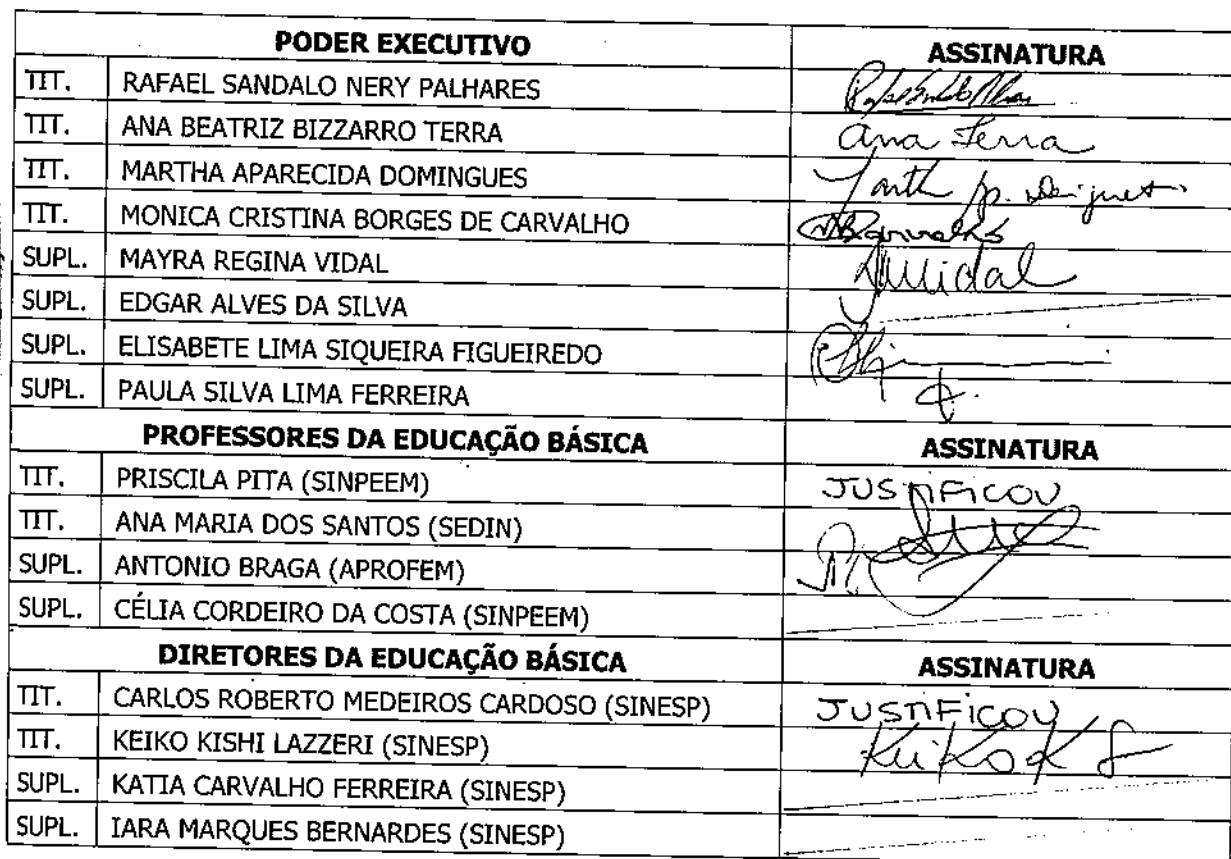 PODER EXECUTIVO ASSINATURA
TIT. RAFAEL SANDALO NERY PALHARES
TIT. ANA BEATRIZ BIZZARRO TERRA Ana Terra
TIT. MARTHA APARECIDA DOMINGUES
TIT. MONICA CRISTINA BORGES DE CARVALHO
SUPL. MAYRA REGINA VIDAL
SUPL. EDGAR ALVES DA SILVA
SUPL. ELISABETE LIMA SIQUEIRA FIGUEIREDO
SUPL. PAULA SILVA LIMA FERREIRA
PROFESSORES DA EDUCAÇÃO BÁSICA ASSINATURA
TIT. PRISCILA PITA (SINPEEM) JUSTIFICOU
TIT. ANA MARIA DOS SANTOS (SEDIN)
SUPL. ANTONIO BRAGA (APROFEM)
SUPL. CÉLIA CORDEIRO DA COSTA (SINPEEM)
DIRETORES DA EDUCAÇÃO BÁSICA ASSINATURA
TIT. CARLOS ROBERTO MEDEIROS CARDOSO (SINESP) JUSTIFICOU
TIT. KEIKO KISHI LAZZERI (SINESP) Keiko K
SUPL. KATIA CARVALHO FERREIRA (SINESP)
SUPL. IARA MARQUES BERNARDES (SINESP)